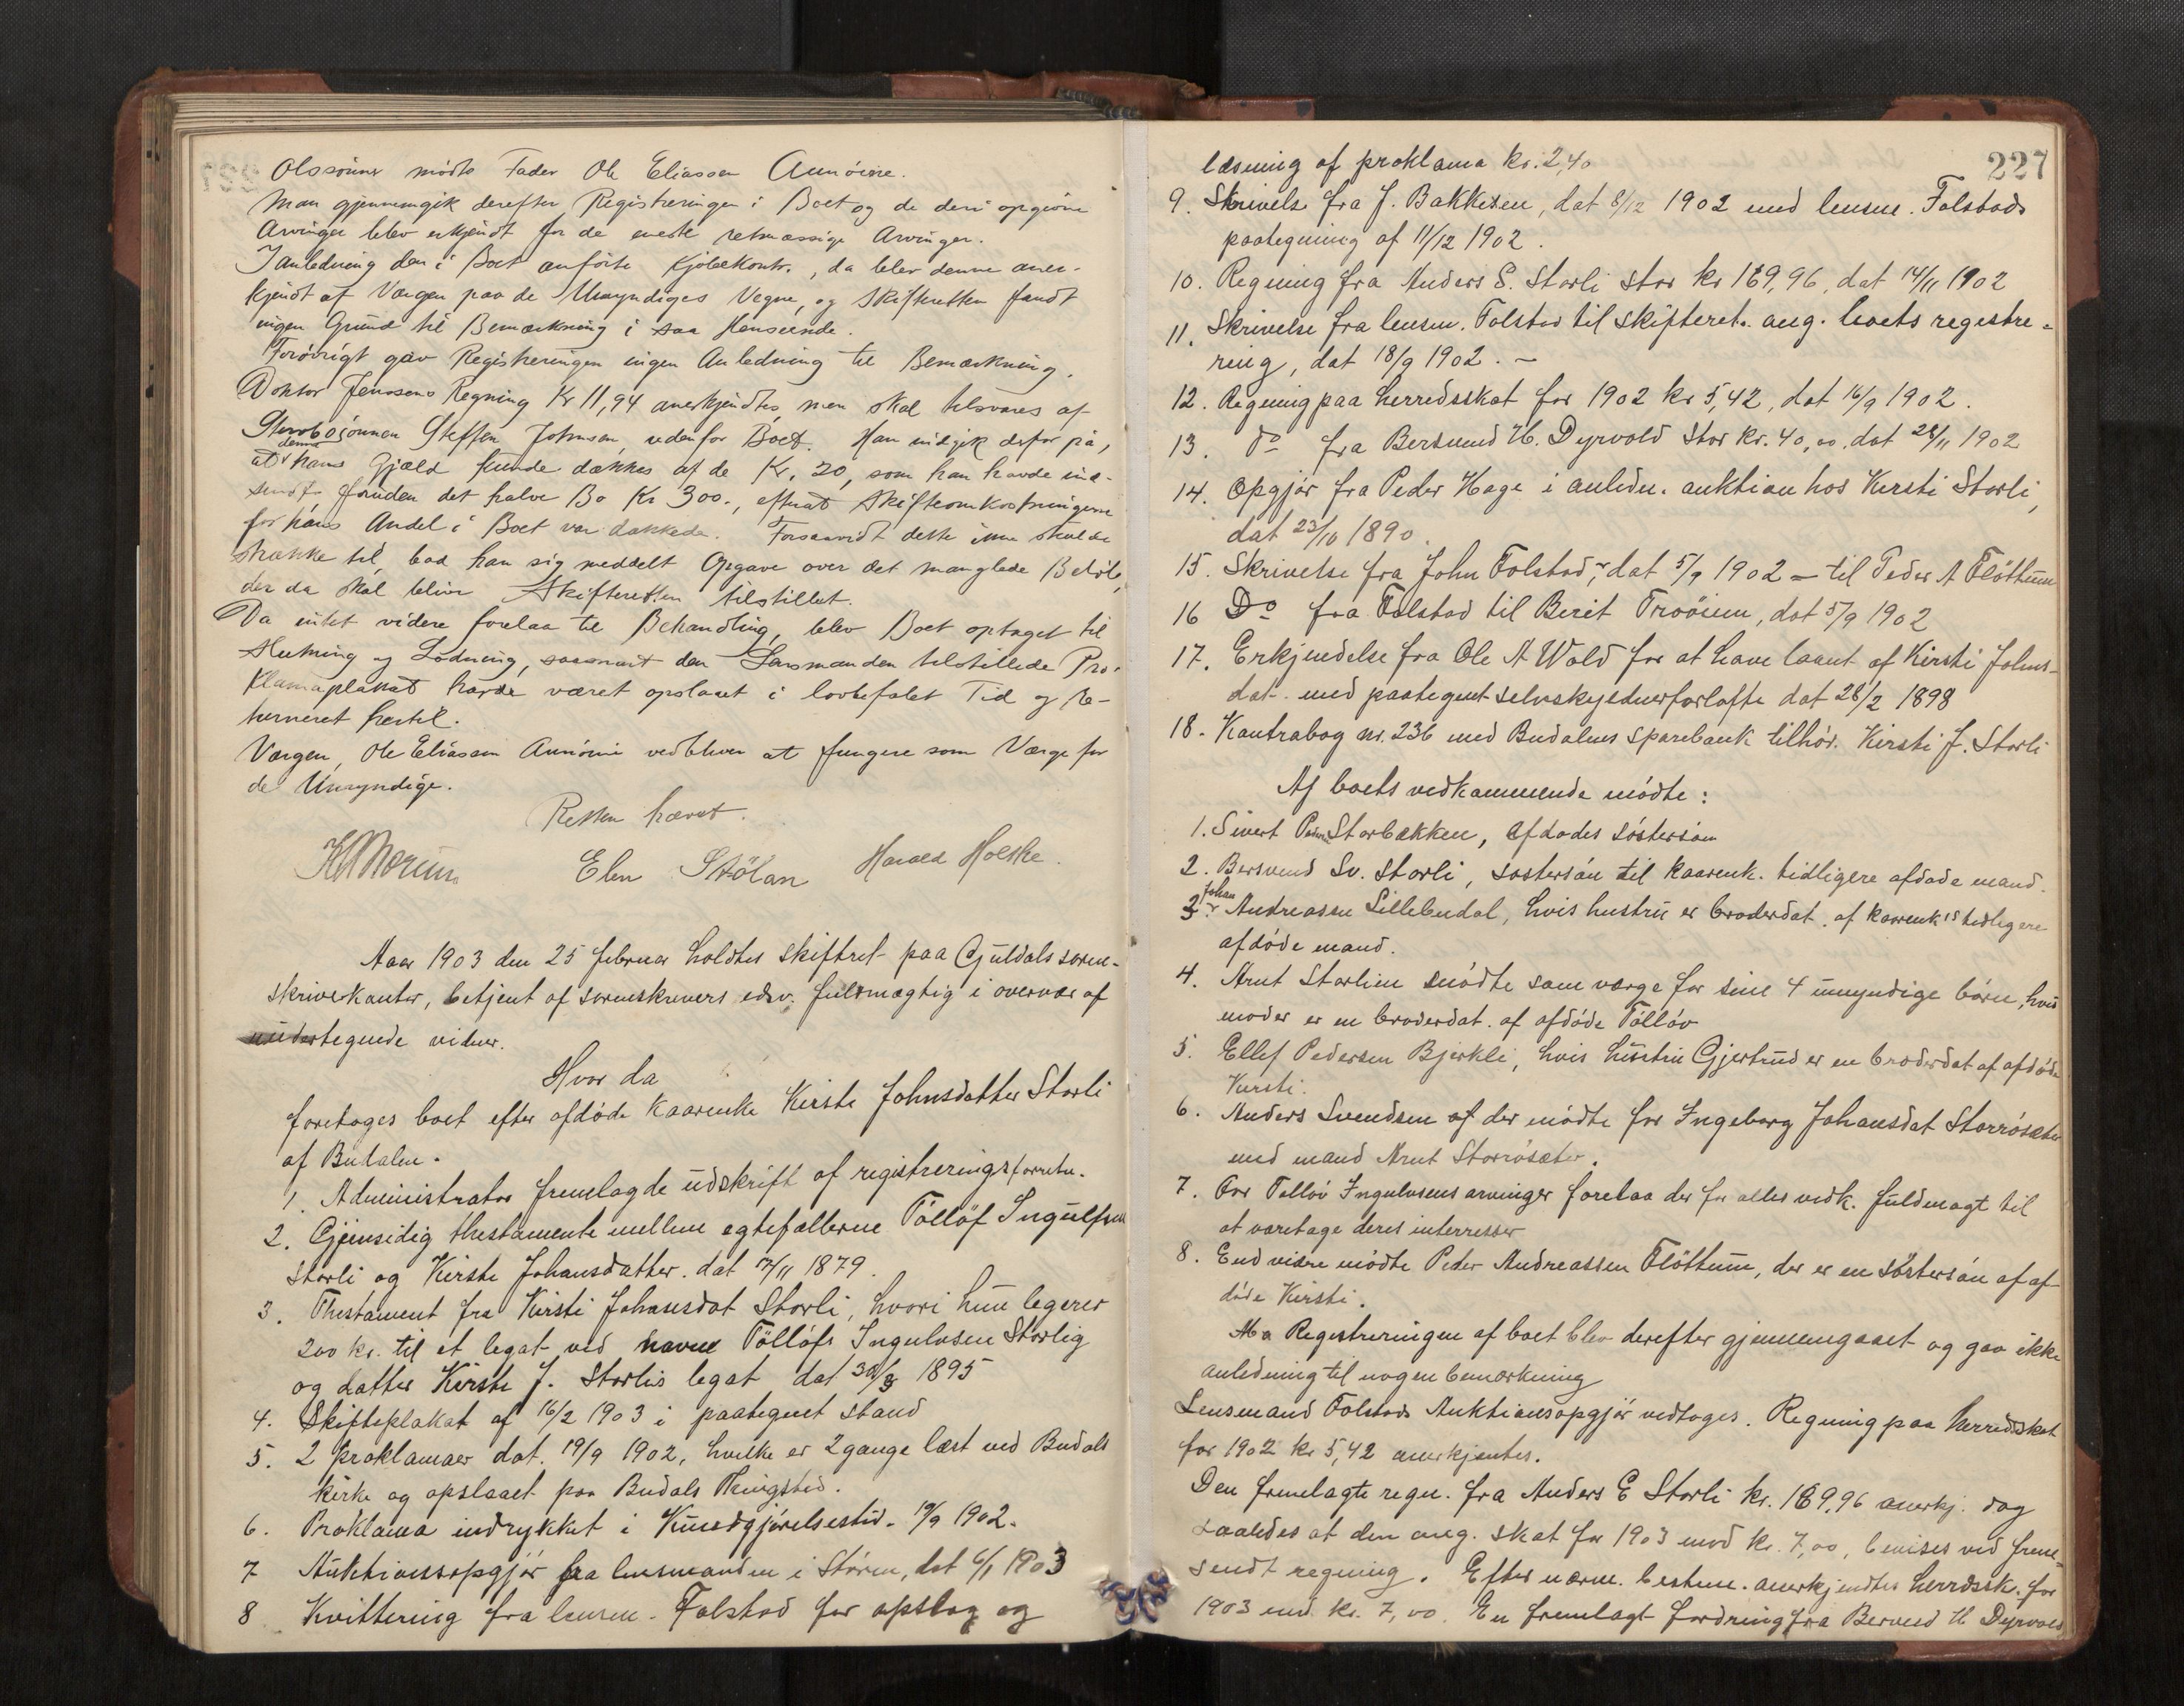 Olssönner mödte Fader Ole Eliassen Aunöine.
Man gjennemgik derefter Registreringen i Boet og de deri opgivne
Arvinger blev erkjendt for de eneste retmæssige Arvinger.
I anledning den i Boet anförte Kjöbekontr., da blev denne aner-
kjendt af Værgen paa de Umyndiges Vegne, og Skifteretten fandt
ingen Grund til Bemærkning i saa Henseende.
Forövrigt gav Registreringen ingen Anledning til Bemærkning.
Doktor Jenssens Regning Kr 11,94 anerkjendtes, men skal tilsvares af
Sterbosönnen Steffen Johnsen, udenfor Boet. Han indgik derfor på,
at denne hans Gjæld kunde dækkes af de Kr. 20, som han havde ind-
sendt foruden det halve Bo Kr 300., efterat Skifteomkostningerne
for hans Andel i Boet var dækkede. Forsaavidt dette ikke skulde
strække til, bad han sig meddelt Opgave over det manglede Belöb,
der da skal blive Skifteretten tilstillet.
Da intet videre forelaa til Behandling, blev Boet optaget til
Slutning og Lodning, saasnart den Lensmanden tilstillede Pro-
klamaplakat havde været opslaaet i lovbefalet Tid og re-
turneret hertil.
Værgen, Ole Eliassen Aunöine vedbliver at fungere som Værge for
de Umyndige.
Retten hævet.
Elen Stölan Harald Holske.
Aar 1903 den 25 februar holdtes skifteret paa Guldals soren-
skriverkontor, betjent af sorenskrivers edsv. fuldmægtig i overvær af
undertegnede vidner.
Hvor da
foretoges boet efter afdöde Kaarenke Kirsti Johnsdatter Storli
af Budalen.
1. Administrator fremlagde udskrift af registreringsforretn.
2. Gjensidig thestamente mellem egtefællerne Töllöf Ingulfsen
Storli og Kirsti Johansdatter. dat 17/11 1879.
3. Thestament fra Kirsti Johansdat Storli, hvori hun legerer
200 kr. til et legat ved navne Töllöfs Ingulvsen Storlig
og datter Kirsti J. Storlis legat dat 30/3 1895
4. Skifteplakat af 16/2 1903 i paategnet stand
5. 2 proklamaer dat. 19/9 1902, hvilke er 2 gange læst ved Budals
kirke og opslaaet paa Budals Thingsted.
6. Proklama indrykket i Kundgjörelsestid. 19/9 1902.
7 Auktionsopgjör fra lensmanden i Stören, dat 6/1 1903
8 Kvittering fra lensm. Folstad for opslag og
227
læsning af proklama kr. 2,40
9. Skrivelse fra J. Bakkesen, dat 8/12 1902 med lensm. Folstads
paategning af 11/12 1902.
10. Regning fra Anders E. Storli stor kr 169,96, dat 14/11 1902
11. Skrivelse fra lensm. Folstad til skifteret. ang. boets registre-
ring, dat 18/9 1902. -
12. Regning paa herredsskat for 1902 kr 5,42, dat 16/9 1902.
13. do fra Bersvend H. Dyrvold stor kr. 40,00 dat 28/11 1902
14. Opgjör fra Peder Hage i anledn. auktion hos Kirsti Storli,
dat 23/10 1890.
15. Skrivelse fra John Folstad, dat 5/9 1902 - til Peder A Flöttum
16 Do fra Folstad til Berit Troöien, dat 5/9 1902
17. Erkjendelse fra Ole A Wold for at have laant af Kirsti Johns-
dat. med paategnet selvskyldnerforløfte dat 28/2 1898
18. Kontrabog nr. 236 med Budalens sparebank tilhör. Kirsti J. Storli
Af boets vedkommende mödte:
1. Sivert Peders. Storbækken, Afdødes söstersön
2. Bersvend Sv. Storli, söstersön til kaarenk. tidligere afdøde mand.
3. Johan Andreassen Lillebudal, hvis hustru er broderdat. af kaarenkes tidligere
afdöde mand.
4. Arnt Storlien mödte som værge for sine 4 umyndige börn, hvis
moder er en broderdat. af afdöde Töllöv
5. Ellef Pedersen Bjerkli, hvis hustru Gjertrud er en broderdat af afdöde
Kirsti.
6. Anders Svendsen af der mödte for Ingeborg Johansdat Storrösæter
med mand Arnt Storrösæter.
7. For Tollöv Ingulvsens arvinger forelaa der for alles vedk. fuldmagt til
at varetage deres interresser
8. End vidre mödte Peder Andreassen Flöttum, der er en söstersön af af-
döde Kirsti.
Registreringen af boet blev derefter gjennemgaaet og gav ikke
anledning til nogen bemærkning
Lensmand Folstads Auktionsopgjör vedtoges. Regning paa herredsskat
for 1902 kr 5,42 anerkjentes.
Den fremlagte regn. fra Anders E Storli kr. 169,96 anerkj. dog
saaledes at den ang. skat for 1903 med kr. 7,00, bevises ved frem-
sendt regning. Efter nærm. bestem. anerkjendtes herredssk. for
1903 med kr. 7,00. En fremlagt fordring fra Bersvend H Dyrvold